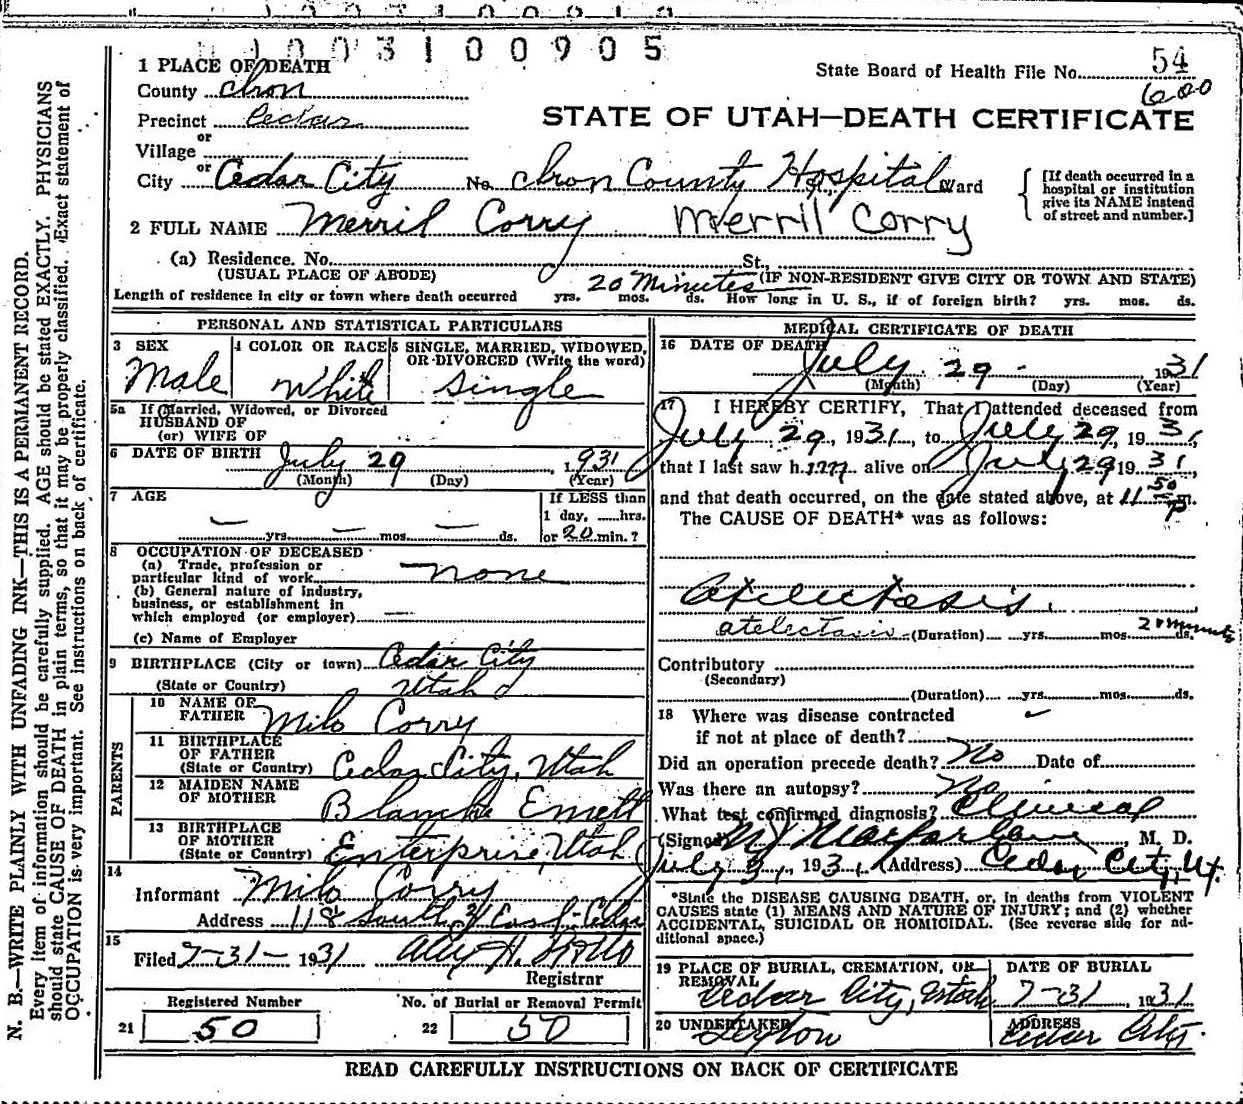 1003100905
1 PLACE OF DEATH
State Board of Health File No. 54
County Iron
600
Precinct Cedar
STATE OF UTAH—DEATH CERTIFICATE
or
Village
or
City Cedar City No. Iron County Hospital St., Ward
[If death occurred in a hospital or institution give its NAME instead of street and number.]
2 FULL NAME Merril Corry Merril Corry
(a) Residence. No. St.,
(USUAL PLACE OF ABODE) (IF NON-RESIDENT GIVE CITY OR TOWN AND STATE)
Length of residence in city or town where death occurred yrs. mos. ds. 20 Minutes How long in U. S., if of foreign birth? yrs. mos. ds.
PERSONAL AND STATISTICAL PARTICULARS
3 SEX 4 COLOR OR RACE 5 SINGLE, MARRIED, WIDOWED,
OR DIVORCED (Write the word)
Male White Single
5a If Married, Widowed, or Divorced
HUSBAND OF
(or) WIFE OF
6 DATE OF BIRTH July 29, 1931
(Month) (Day) (Year)
7 AGE If LESS than
1 day, hrs.
— yrs. — mos. — ds. or 20 min.?
8 OCCUPATION OF DECEASED
(a) Trade, profession or
particular kind of work none
(b) General nature of industry,
business, or establishment in
which employed (or employer) —
(c) Name of Employer
9 BIRTHPLACE (City or town) Cedar City
(State or Country) Utah
PARENTS
10 NAME OF
FATHER Milo Corry
11 BIRTHPLACE
OF FATHER
(State or Country) Cedar City, Utah
12 MAIDEN NAME
OF MOTHER Blanche Emett
13 BIRTHPLACE
OF MOTHER
(State or Country) Enterprise, Utah
14
Informant Milo Corry
Address 118 South East Cedar
15
Filed 7-31- 1931
Registrar
Registered Number No. of Burial or Removal Permit
21 50 22 50
MEDICAL CERTIFICATE OF DEATH
16 DATE OF DEATH
July 29 - 1931
(Month) (Day) (Year)
17 I HEREBY CERTIFY, That I attended deceased from
July 29, 1931, to July 29, 1931,
that I last saw him alive on July 29 1931,
and that death occurred, on the date stated above, at 11 50 P m.
The CAUSE OF DEATH* was as follows:
Atelectasis.
atelectasis (Duration) yrs. mos. ds. 20 minutes
Contributory
(Secondary)
(Duration) yrs. mos. ds.
18 Where was disease contracted
if not at place of death?
Did an operation precede death? No Date of
Was there an autopsy? No
What test confirmed diagnosis? Clinical
(Signed) M J Macfarlane M. D.
July 31, 1931, (Address) Cedar City, Ut.
*State the DISEASE CAUSING DEATH, or, in deaths from VIOLENT
CAUSES state (1) MEANS AND NATURE OF INJURY; and (2) whether
ACCIDENTAL, SUICIDAL OR HOMICIDAL. (See reverse side for ad-
ditional space.)
19 PLACE OF BURIAL, CREMATION, OR
REMOVAL DATE OF BURIAL
Cedar City, Utah 7-31, 1931
20 UNDERTAKER ADDRESS
Cedar City.
READ CAREFULLY INSTRUCTIONS ON BACK OF CERTIFICATE
N. B.—WRITE PLAINLY WITH UNFADING INK—THIS IS A PERMANENT RECORD.
Every item of information should be carefully supplied. AGE should be stated EXACTLY. PHYSICIANS
should state CAUSE OF DEATH in plain terms, so that it may be properly classified. Exact statement of
OCCUPATION is very important. See instructions on back of certificate.